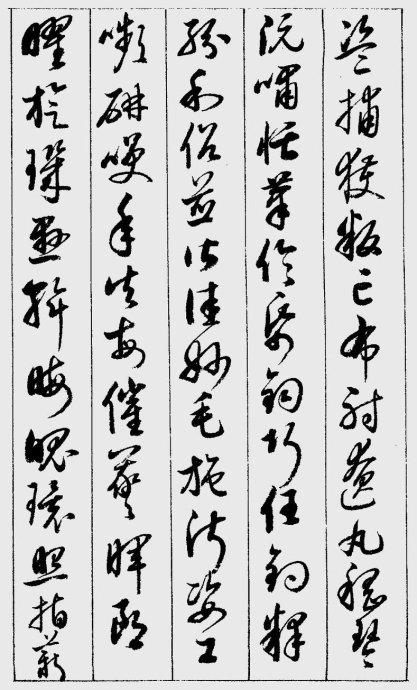 盗捕獲叛亡布射遼丸嵇琴
阮嘯恬筆倫紙鈞巧任釣釋
紛利俗並皆佳妙毛施淑姿工
嚬研咲年矢每催羲暉朗
曜旋璣懸斡晦魄環照指薪